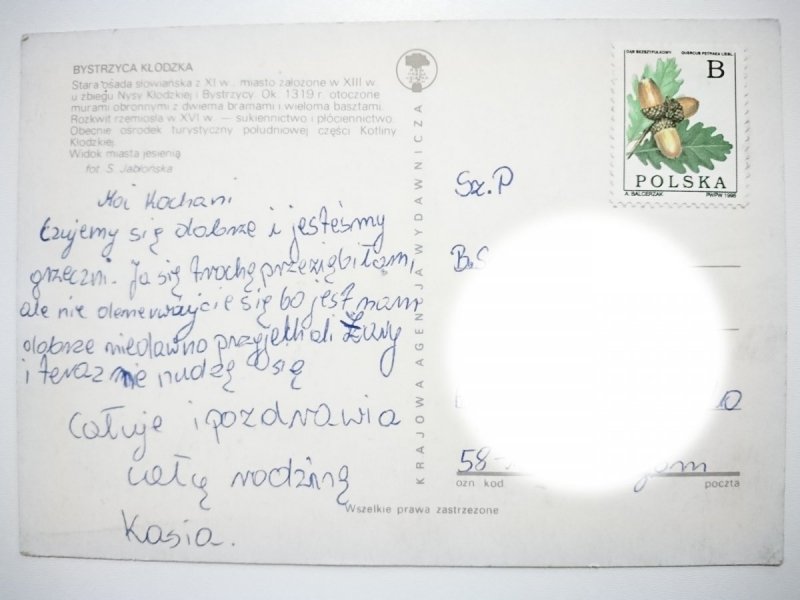 BYSTRZYCA KŁODZKA
Stara osada słowiańska z XI w., miasto założone w XIII w.
u zbiegu Nysy Kłodzkiej i Bystrzycy. Ok. 1319 r. otoczone
murami obronnymi z dwiema bramami i wieloma basztami.
Rozkwit rzemiosła w XVI w. — sukiennictwo i płóciennictwo.
Obecnie ośrodek turystyczny południowej części Kotliny
Kłodzkiej.
Widok miasta jesienią
fot. S. Jabłońska
Moi Kochani
Czujemy się dobrze i jesteśmy
grzeczni. Ja się trochę przeziębiłam,
ale nie denerwujcie się bo jest nam
dobrze niedawno przyjechali
i teraz nie nudzę się
Całuje i pozdrawia
całą rodziną
Kasia.
KRAJOWA AGENCJA WYDAWNICZA
Wszelkie prawa zastrzeżone
DĄB BEZSZYPUŁKOWY QUERCUS PETRAEA LIEBL.
B
POLSKA
A. BALCERZAK PWPW 1995
Sz. P
B.S
58-
ozn kod poczta